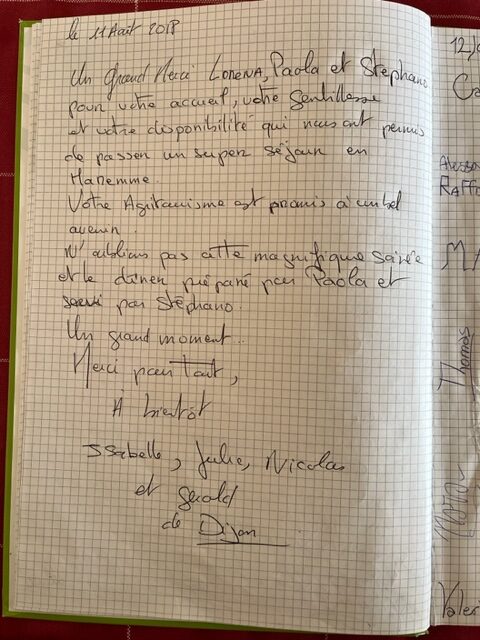 le 11 Août 2018
Un Grand Merci LORENA, Paola et Stephano
pour votre accueil, votre gentillesse
et votre disponibilité qui nous ont permis
de passer un super séjour en
Maremme.
Votre Agitourisme est promis à un bel
avenir.
N'oublions pas cette magnifique soirée
et le dîner préparé par Paola et
servi par Stéphano.
Un grand moment...
Merci pour Tout,
À bientôt
Issabelle, Julie, Nicolas
et Gérald
de Dijon
12/
Ca
RAFF
M
Thomas
Valer